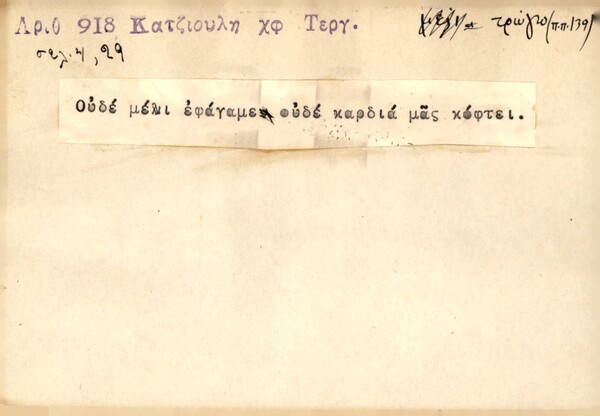 Αρ.θ 918 Κατζιουλη χφ Τεργ. μέλι - τρώγω (π.π. 139)
σελ. 4, 29
Οὐδέ μέλι ἐφάγαμε οὐδέ καρδιά μᾶς κόφτει.